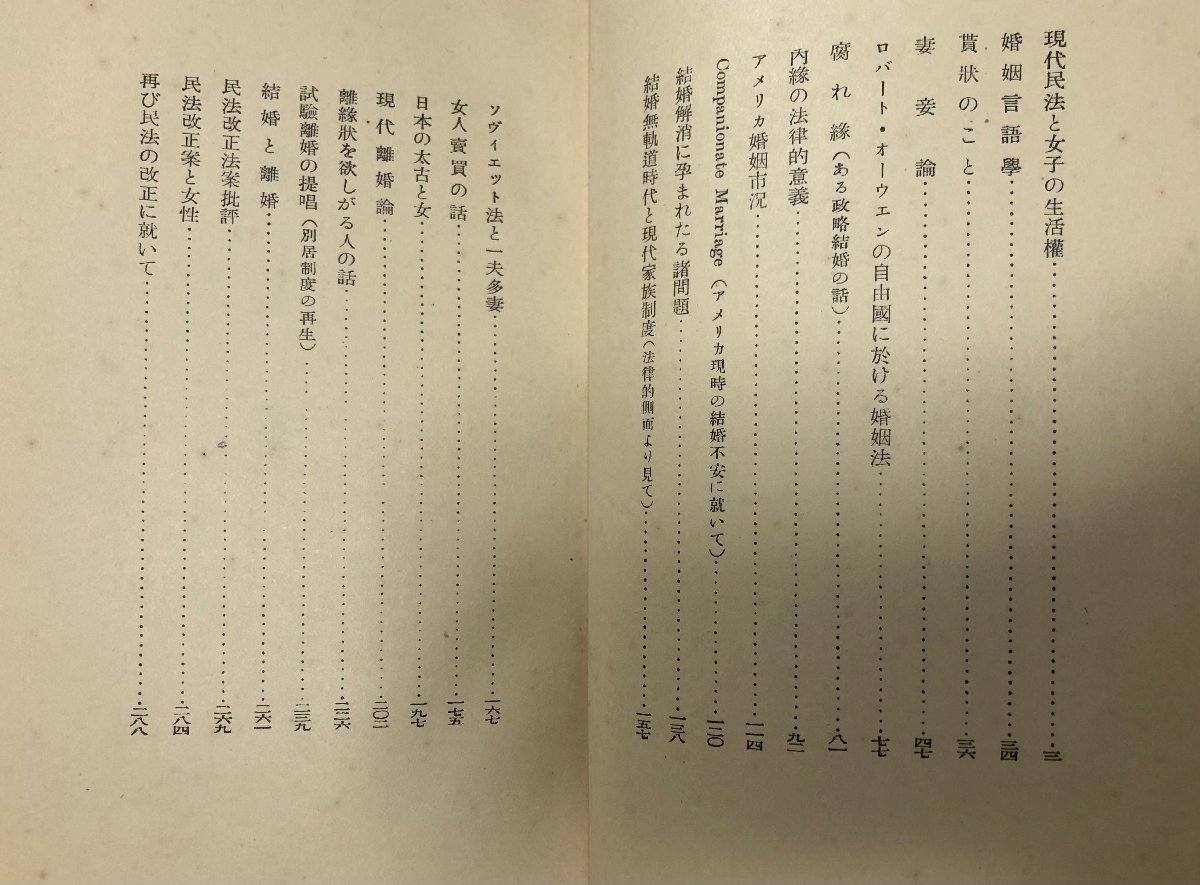 現代民法と女子の生活權……三
婚姻言語學……三四
貰狀のこと……三六
妻妾論……四七
ロバート・オーウエンの自由國に於ける婚姻法……七七
腐れ緣(ある政略結婚の話)……八一
內緣の法律的意義……九二
アメリカ婚姻市況……一一四
Companionate Marriage(アメリカ現時の結婚不安に就いて)……一二〇
結婚解消に孕まれたる諸問題……一三八
結婚無軌道時代と現代家族制度(法律的側面より見て)……一五七
ソヴィエット法と一夫多妻……一六七
女人賣買の話……一七五
日本の太古と女……一九七
現代離婚論……二〇二
離緣狀を欲しがる人の話……二二六
試驗離婚の提唱(別居制度の再生)……二三九
結婚と離婚……二六一
民法改正法案批評……二六九
民法改正案と女性……二八四
再び民法の改正に就いて……二八八